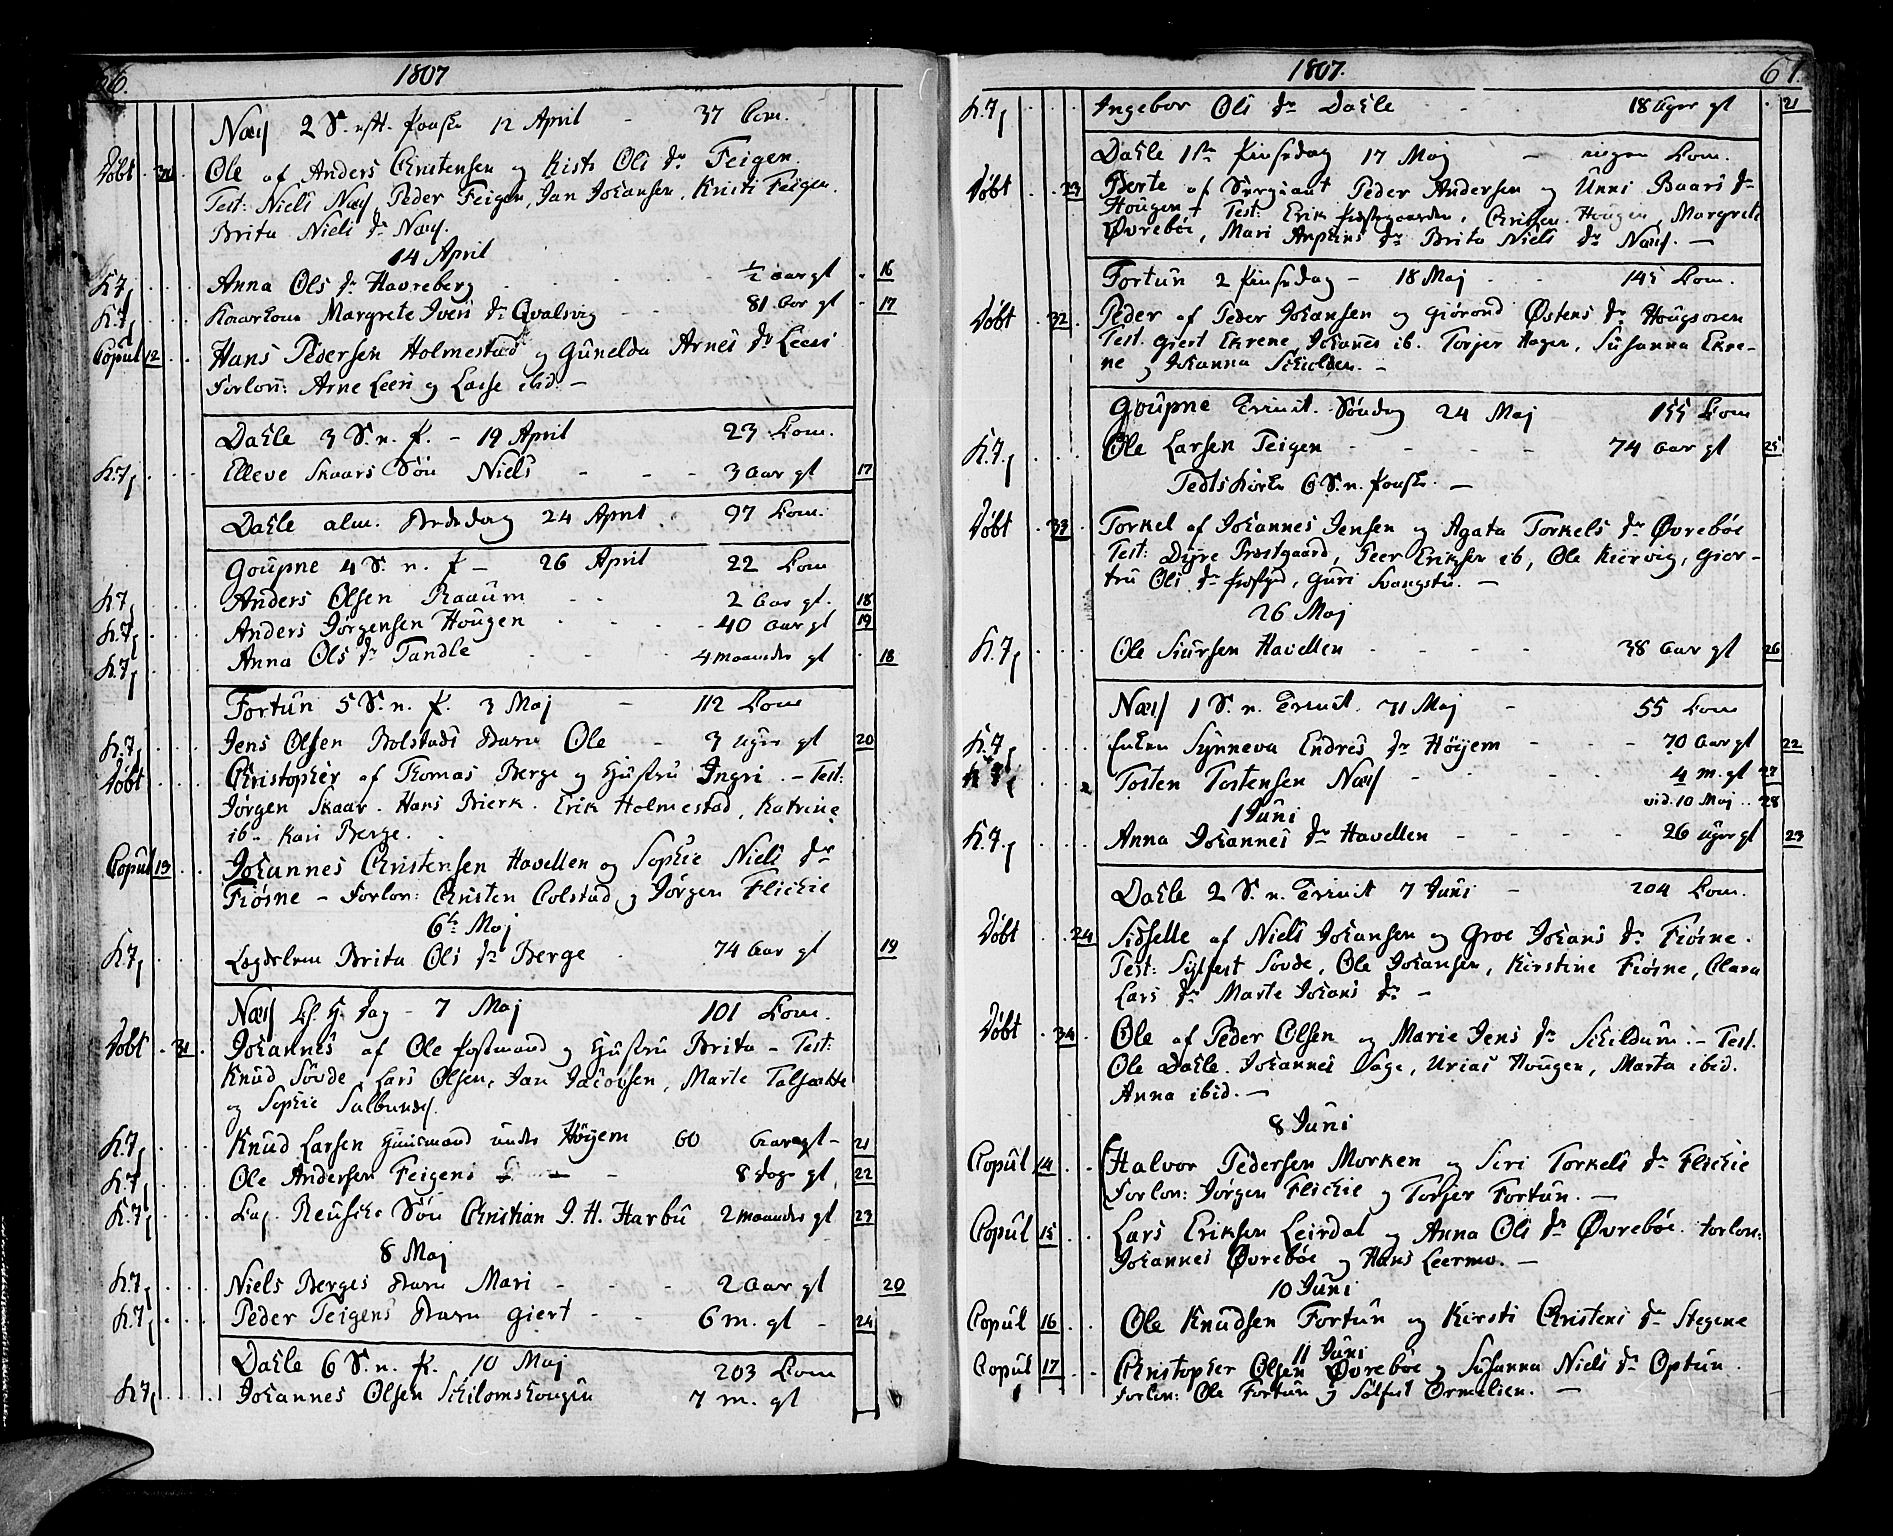 66.
1807
Næs 2 S. eft. Paaske 12 April - 37 Com.
Døbt 30 Ole af Anders Christensen og Kisti Ols dr Feigen.
Test: Niels Næs, Peder Feigen, Jan Johansen, Kristi Feigen.
Brita Niels dr Næs.
14 April
K.7, Anna Ols dr Havreberg ½ aar gl 16
K.7, Margrete Ivers dr Qvalsvig 81 aar gl 17
Copul 12 Hans Pedersen Holmestad og Gunelda Arnes dr Leeri
Forlov: Arne Leeri og Lasse ibid. -
Dahle 3 S. n. P. - 19 April 23 Com.
K.7, Elleve Skaars Søn Niels - - - 3 aar gl 17
Dahle alm. Bededag 24 April 97 Com.
Goupne 4 S. n. P - 26 April 22 Com
K.7, Anders Olsen Raaum 2 aar gl. 18
K.7, Anders Jørgensen Hougen 40 aar gl 19
K.7, Anna Ols dr Tandle 4 maaneder gl 18
Fortun 5 S. n. P. 3 Maj - 112 Com
K.7, Jens Olsen Bolstads Barn Ole - 3 uger gl 20
Døbt Christopher af Thomas Berge og Hustru Ingri. - Test:
Jørgen Skaar. Hans Bierk. Erik Holmestad, Katrine
ib. Kari Berge.
Copul 13 Johannes Christensen Havellen og Sophie Niels dr
Fiøsne - Forlov: Christen Bolstad og Jørgen Flichie
6te Maj
K.7, Lægdslem Brita Ols dr Berge 74 aar gl 19
Næs Chr. H. Dag - 7 Maj 101 Com.
Døbt 31 Johannes af Ole Postmand og Hustru Brita - Test:
Knud Søvde, Lars Olsen, Jan Jacobsen, Marte Talsætte
og Sophie
K.7, Knud Larsen Huusmand under Høyem 60 aar gl - 21
K.7, Ole Andersen Feigens 8 dage gl, 22
K.7, Reusche Søn Christian J. H. Harbu 2 maaneder gl 23
8 Maj
K.7, Niels Berges Barn Mari - - - 2 aar gl 20
K.7, Peder Teigens Barn Giert - - 6 m. gl - 24
Dahle 6 S. n. P. 10 Maj 203 Com
K.7, Johannes Olsen 7 m. gl
1807.
67.
K.7, Ingebor Ols dr Dahle 18 uger gl 21
Dahle 1ste Pinsedag 17 Maj - ingen Com.
Døbt 23 Berte af Sergiant Peder Andersen og Unni Baars dr
Hougen + Test: Erik Præstegaarden, Christen Hougen, Margrete
Øvrebøe, Mari Anphins dr Brita Niels dr Næs. -
Fortun 2 Pinsedag - 18 Maj - 145 Com.
Døbt 32 Peder af Peder Johansen og Giørond Østens dr Hougsoren
Test. Giert Ekrene, Johannes ib. Torjer Hagen, Susanna Ekre-
ne og Johanna Schiolden. -
Goupne Trinit. Søndag 24 Maj 155 Com
K.7, Ole Larsen Teigen - - - 74 aar gl 25
Jedts Kirke 6 S. n. Paaske. -
Døbt 33 Torkel af Johannes Jensen og Agata Torkels dr Øvrebøe
Test: Dyre Præstgaard, Peer Eriksen ib, Ole Kiervig, Gior-
tru Ols dr , Guri
26 Maj
K.7, Ole Siursen Havellen 38 aar gl 26
Næs 1 S. n. Trinit. 31 Maj - 55 Com
K.7, Enken Synneva Endres dr Høyem - - - 70 aar gl 22
K.7, 2 Tosten Tostensen Næs - - - 4 m. gl 27
vid. 10 Maj .. 28
1 Juni
K.7, Anna Johannes dr Havellen - - - 26 uger gl 23
Dahle 2 S. n. Trinit 7 Juni - 204 Com.
Døbt 24 Sidselle af Niels Johansen og Groe Johans dr Fiøsne.
Test: Sylfest Søvde, Ole Johansen, Kirstine Fiøsne, Clara
Lars dr Marte Johans dr -
Døbt 34 Ole af Peder Olsen og Marie Jens dr Schildum. - Test.
Ole Dahle. Johannes Vage, Urias Hougen, Marta ibid.
Anna ibid. -
8 Juni
Copul 14 Halvor Pedersen Morken og Siri Torkels dr Flichie
Forlov: Jørgen Flichie og Torjer Fortun. -
Copul 15 Lars Eriksen Leirdal og Anna Ols dr Øvrebøe. Forlov:
Johannes Øvrebøe og Hans Leermo. -
10 Juni
Copul 16 Ole Knudsen Fortun og Kirsti Christens dr Stegene
11 Juni
Copul 17 Christopher Olsen Øvrebøe og Susanna Niels dr Optun.
Forlov: Ole Fortun og Sølfest Ormelien. -